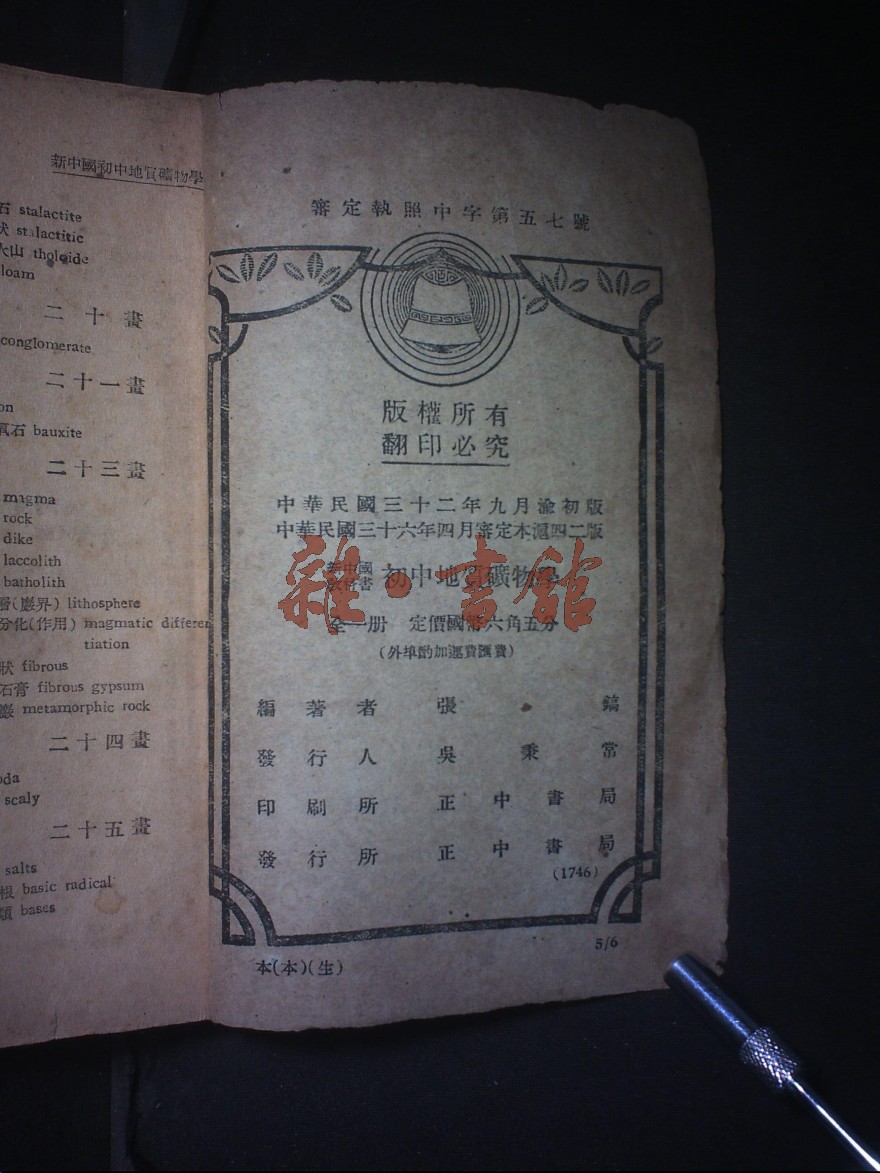 新中國初中地質礦物學
石 stalactite
狀 stalactitic
火山 tholoide
loam
二十畫
conglomerate
二十一畫
on
氧石 bauxite
二十三畫
magma
rock
dike
laccolith
batholith
層(巖界) lithosphere
分化(作用) magmatic differen
tiation
狀 fibrous
石膏 fibrous gypsum
巖 metamorphic rock
二十四畫
oda
scaly
二十五畫
salts
根 basic radical
類 bases
審定執照中字第五七號
版權所有
翻印必究
中華民國三十二年九月渝初版
中華民國三十六年四月審定本滬四二版
新中國教科書 初中地質礦物學
全一册 定價國幣六角五分
(外埠酌加運費匯費)
編著者 張鎬
發行人 吳秉常
印刷所 正中書局
發行所 正中書局
(1746)
5/6
本(本)(生)
雜·書館